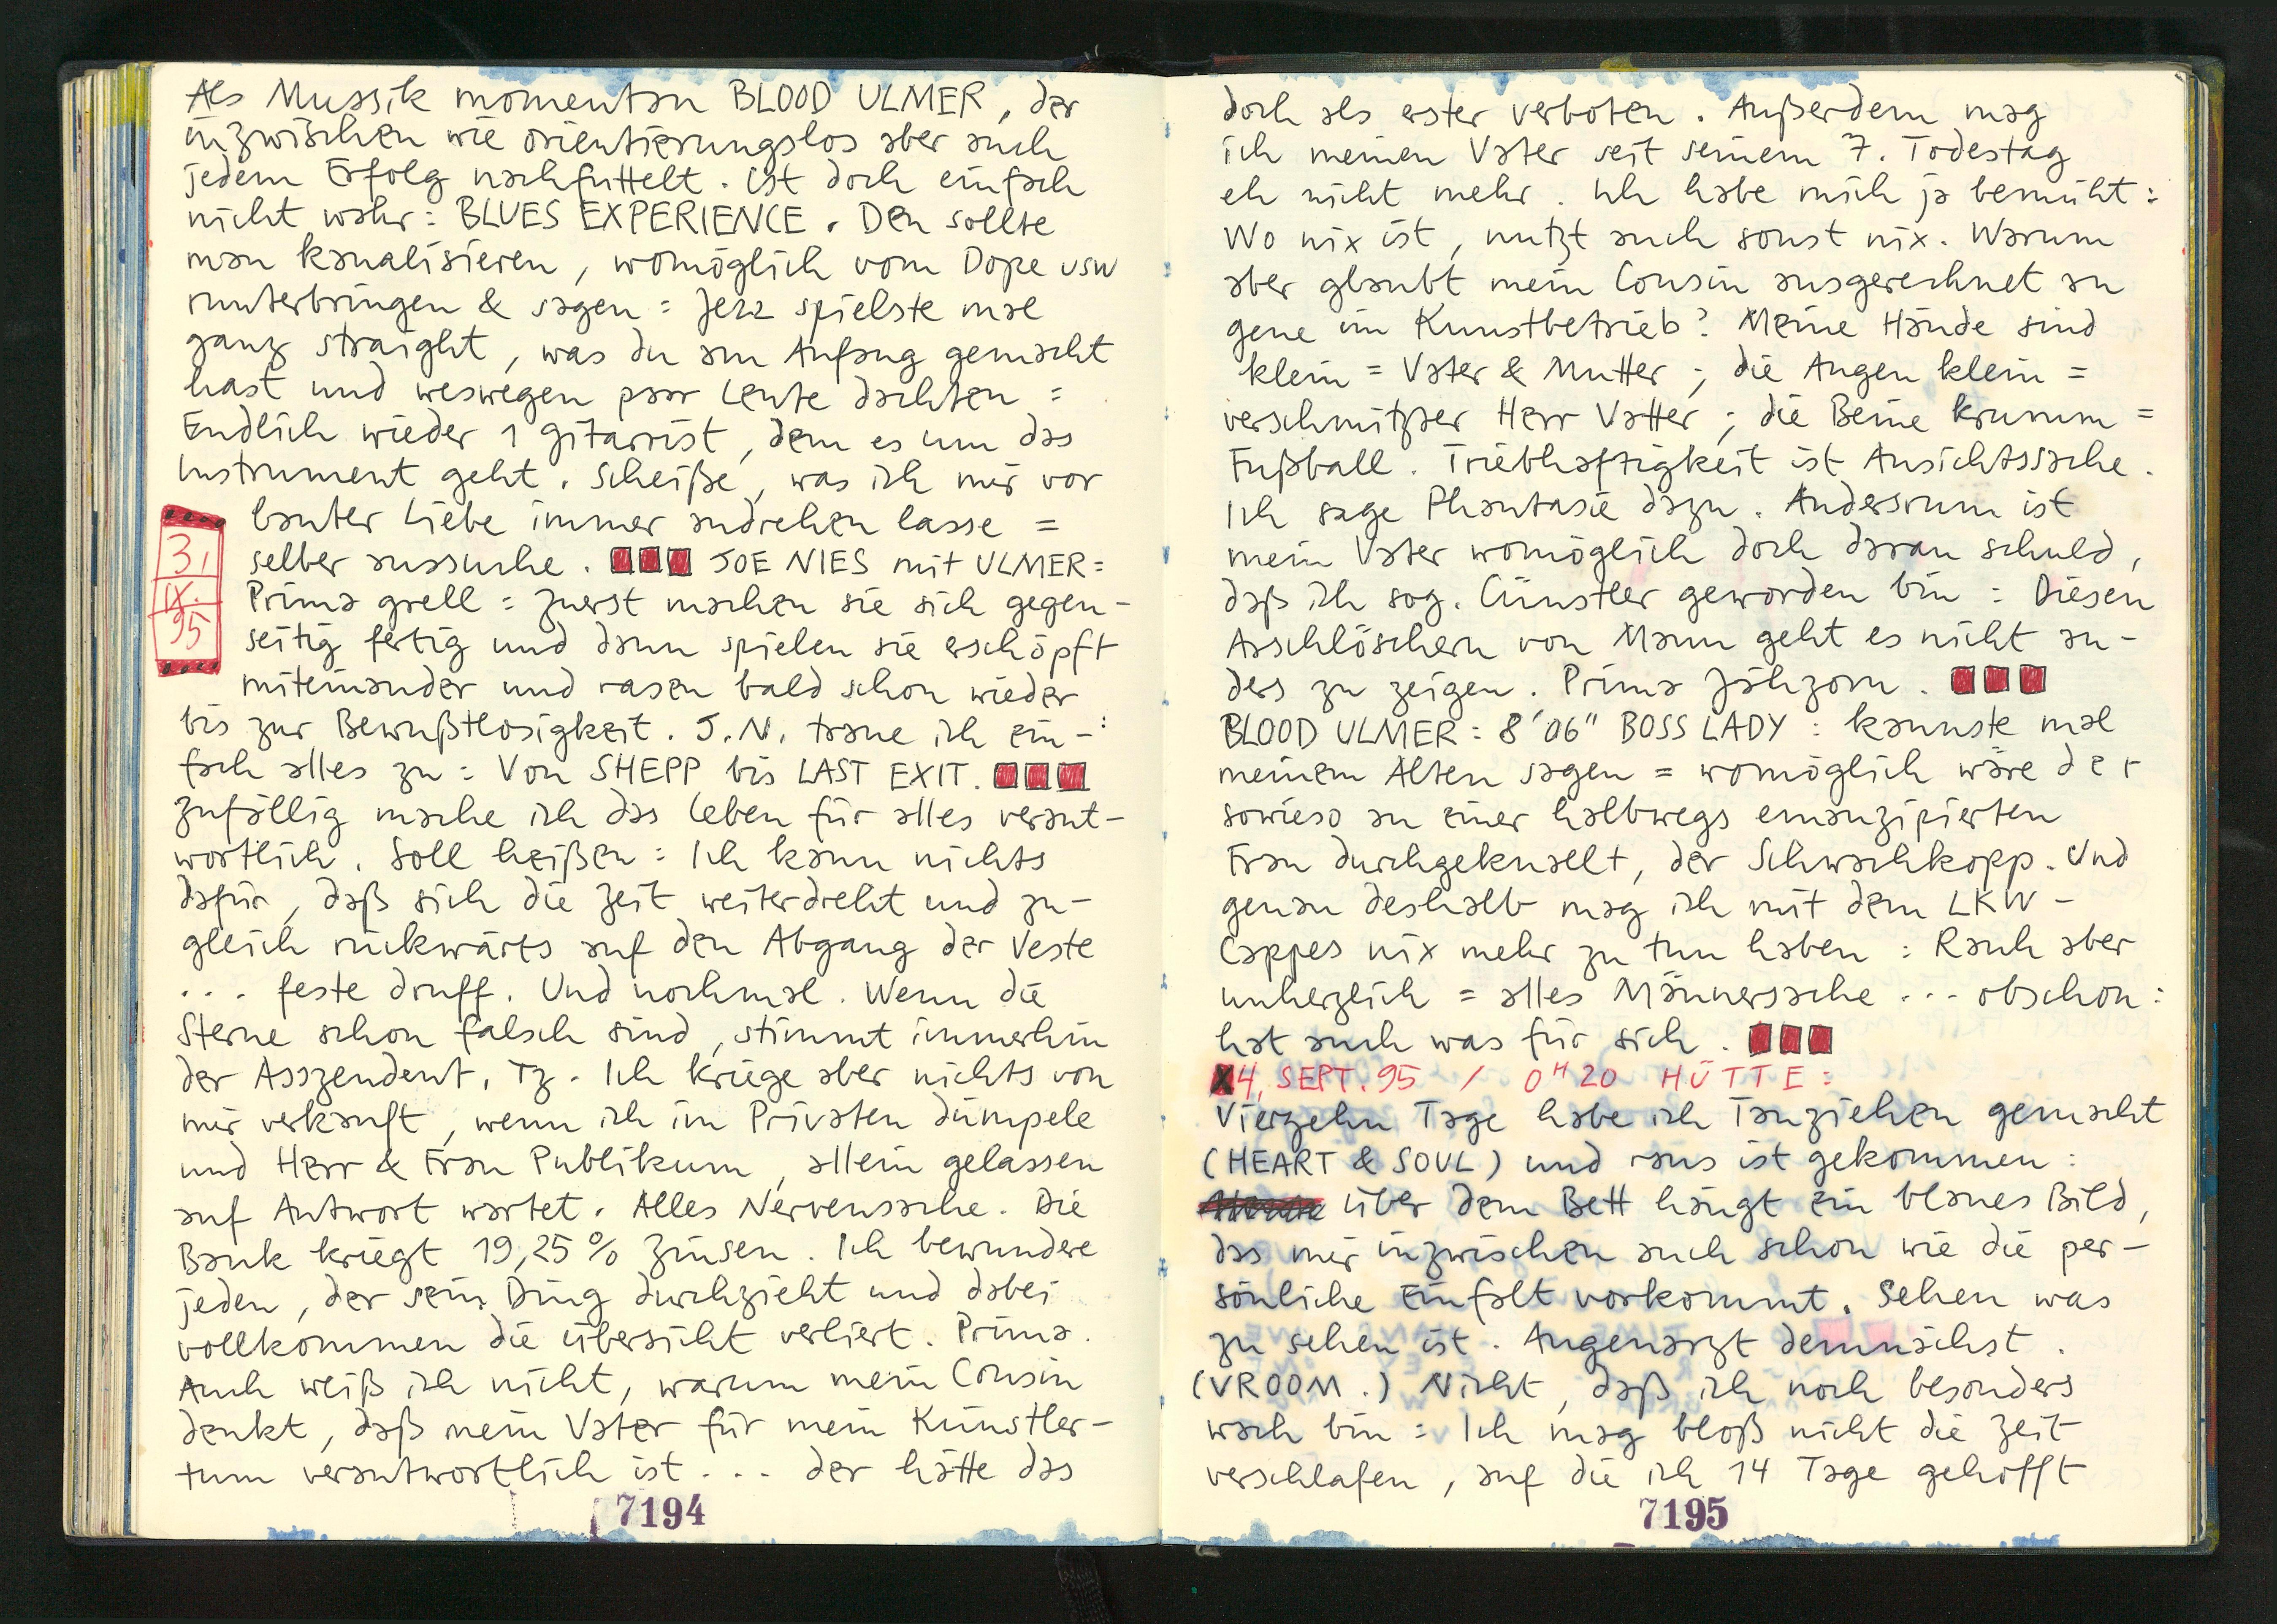 Als Mussik momentan BLOOD ULMER, der
inzwischen wie orientierungslos aber auch
jedem Erfolg nachfuttelt. Ist doch einfach
nicht wahr: BLUES EXPERIENCE. Den sollte
man kanalisieren, womöglich vom Dope usw
runterbringen & sagen: Jezz spielste mal
ganz straight, was du am Anfang gemacht
hast und weswegen paar Leute dachten:
Endlich wieder 1 Gitarrist, dem es um das
Instrument geht. Scheiße, was ich mir vor
lauter Liebe immer andrehen lasse =
selber aussuche. JOE NIES mit ULMER:
Prima grell: Zuerst machen sie sich gegen-
seitig fertig und dann spielen sie erschöpft
miteinander und rasen bald schon wieder
3,
IX.
95
bis zur Bewußtlosigkeit. J.N. traue ich ein-
fach alles zu: Von SHEPP bis LAST EXIT.
Zufällig mache ich das Leben für alles verant-
wortlich. Soll heißen: Ich kann nichts
dafür, daß sich die Zeit weiterdreht und zu-
gleich rückwärts auf den Abgang der Veste
... feste druff. Und nochmal. Wenn die
Sterne schon falsch sind, stimmt immerhin
der Asszendent. Tz. Ich kriege aber nichts von
mir verkauft, wenn ich im Privaten dümpele
und Herr & Frau Publikum, allein gelassen
auf Antwort wartet. Alles Nervensache. Die
Bank kriegt 19,25% Zinsen. Ich bewundere
jeden, der sein Ding durchzieht und dabei
vollkommen die Übersicht verliert. Prima.
Auch weiß ich nicht, warum mein Cousin
denkt, daß mein Vater für mein Künstler-
tum verantwortlich ist... der hätte das
7194
doch als erster verboten. Außerdem mag
ich meinen Vater seit seinem 7. Todestag
eh nicht mehr. Ich habe mich ja bemüht:
Wo nix ist, nutzt auch sonst nix. Warum
aber glaubt mein Cousin ausgerechnet an
gene im Kunstbetrieb? Meine Hände sind
klein = Vater & Mutter; die Augen klein =
verschmitzer Herr Vatter; die Beine krumm =
Fußball. Triebhaftigkeit ist Ansichtssache.
Ich sage Phantasie dazu. Andersrum ist
mein Vater womöglich doch daran schuld,
daß ich sog. Cünstler geworden bin: Diesen
Asschlöschern von Mann geht es nicht an-
ders zu zeigen. Prima Jähzorn.
BLOOD ULMER: 8'06" BOSS LADY: kannste mal
meinem Alten sagen = womöglich wäre der
sowieso an einer halbwegs emanzipierten
Frau durchgeknallt, der Schwachkopp. Und
genau deshalb mag ich mit dem LKW-
Cappes nix mehr zu tun haben: Rauh aber
unherzlich = alles Männersache... obschon:
hat auch was für sich.
4. SEPT. 95 / 0H20 HÜTTE:
Vierzehn Tage habe ich Tauziehen gemacht
(HEART & SOUL) und raus ist gekommen:
über dem Bett hängt ein blaues Bild,
das mir inzwischen auch schon wie die per-
sönliche Einfalt vorkommt. Sehen was
zu sehen ist. Augenarzt demnächst.
(VROOM.) Nicht, daß ich noch besonders
wach bin: Ich mag bloß nicht die Zeit
verschlafen, auf die ich 14 Tage gehofft
7195